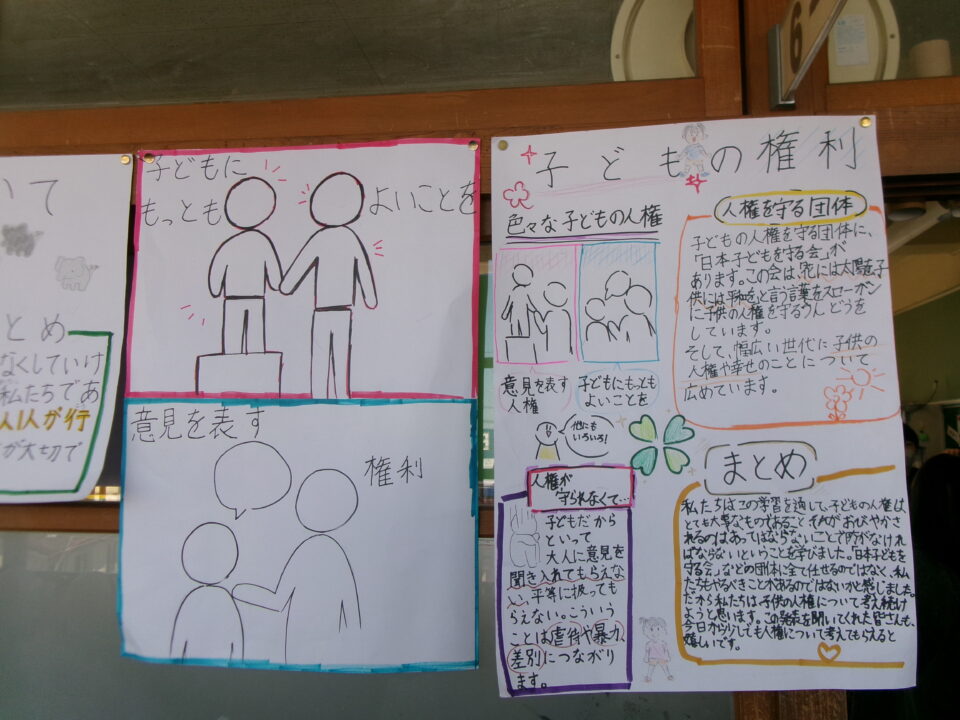 いて
とめ
なくしていけ
私たちであ
人1人が行
が大切で
子どもに
もっとも
よいことを
意見を表す
権利
子どもの権利
色々な子どもの人権
意見を表す
人権
子どもにもっとも
よいことを
他にも
いろいろ!
人権が
守られなくて…
子どもだから
といって
大人に意見を
聞き入れてもらえな
い、平等に扱っても
らえない。こういう
ことは虐待や暴力、
差別につながり
ます。
人権を守る団体
子どもの人権を守る団体に、
「日本子どもを守る会」が
あります。この会は、児には太陽を子
供には平和をと言う言葉をスローガン
に子供の人権を守るうんどうを
しています。
そして、幅広い世代に子供の
人権や幸せのことについて
広めています。
まとめ
私たちはこの学習を通して、子どもの人権は
とても大事なものであること それがおびやかさ
れるのはあってはならないことで
ばならないということを学びました。「日本子どもを
守る会」などの団体に全て任せるのではなく、私
たちもやるべきことがあるのではないかと感じました。
だから私たちは子供の人権について考え続け
ようと思います。この発表を聞いてくれた皆さんも、
今日から少しでも人権について考えてもらえると
嬉しいです。